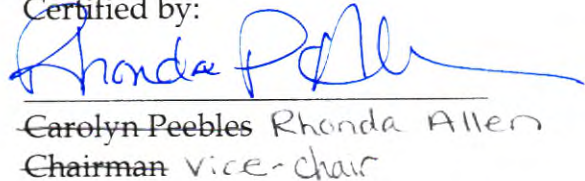 Certified by:
Rhonda P Allen
Carolyn Peebles Rhonda Allen
Chairman Vice-chair